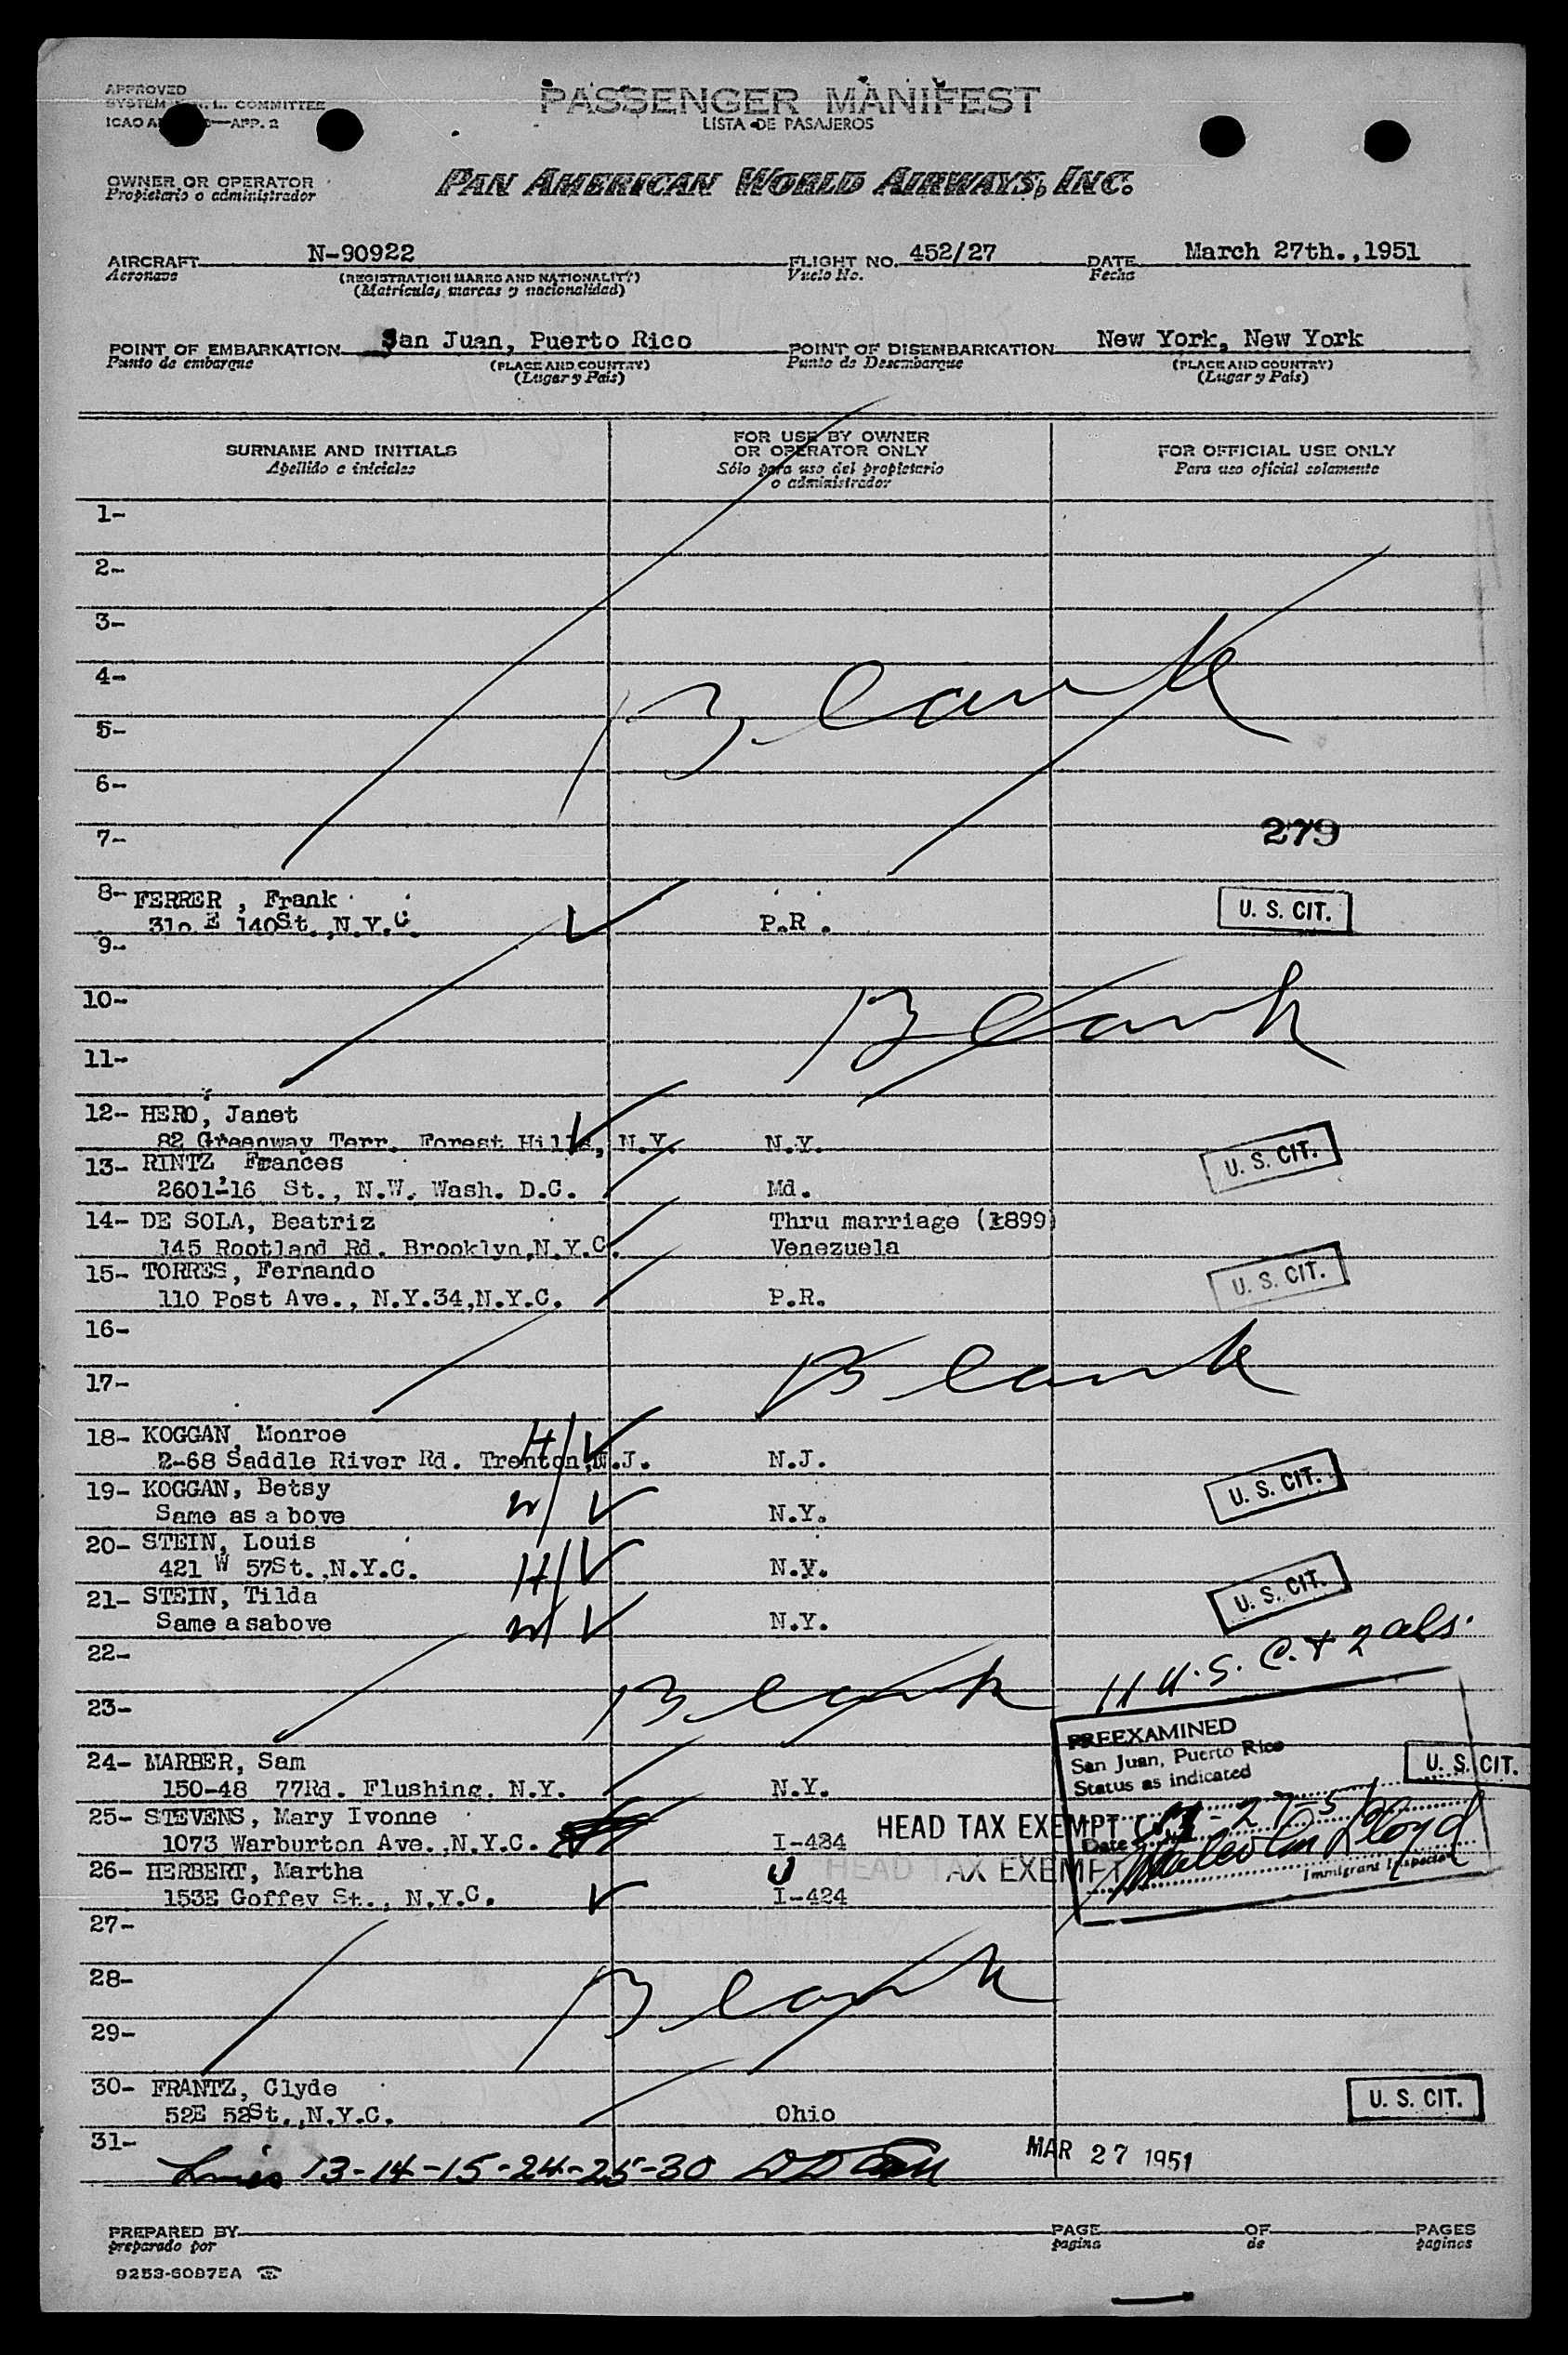 APPROVED
SYSTEM COMMITTEE
ICAO APP. 2
PASSENGER MANIFEST
LISTA DE PASAJEROS
OWNER OR OPERATOR
Propietario o administrador
PAN AMERICAN WORLD AIRWAYS, INC.
AIRCRAFT N-90922 FLIGHT NO. 452/27 DATE March 27th.,1951
Aeronave (REGISTRATION MARKS AND NATIONALITY) Vuelo No. Fecha
(Matrícula, marcas y nacionalidad)
POINT OF EMBARKATION San Juan, Puerto Rico POINT OF DISEMBARKATION New York, New York
Punto de embarque (PLACE AND COUNTRY) Punto de Desembarque (PLACE AND COUNTRY)
(Lugar y País) (Lugar y País)
SURNAME AND INITIALS FOR USE BY OWNER OR OPERATOR ONLY FOR OFFICIAL USE ONLY
Apellido e iniciales Sólo para uso del propietario o administrador Para uso oficial solamente
1-
2-
3-
4- Blank
5-
6-
7- 279
8- FERRER , Frank U. S. CIT.
310 E 140St.,N.Y.C. P.R .
9-
10- Blank
11-
12- HERO, Janet
82 Greenway Terr. Forest Hills, N.Y. N.Y. U. S. CIT.
13- RINTZ, Frances
2601-16 St., N.W. Wash. D.C. Md.
14- DE SOLA, Beatriz Thru marriage (1899)
145 Rootland Rd. Brooklyn,N.Y.C. Venezuela
15- TORRES, Fernando U. S. CIT.
110 Post Ave., N.Y.34,N.Y.C. P.R.
16-
17- Blank
18- KOGGAN, Monroe H/
2-68 Saddle River Rd. Trenton,N.J. N.J.
19- KOGGAN, Betsy W/ U. S. CIT.
Same as a bove N.Y.
20- STEIN, Louis H/
421 W 57St.,N.Y.C. N.y.
21- STEIN, Tilda W/ U. S. CIT.
Same a sabove N.Y.
22- 11 U.S. C. + 2 als.
23- Blank
PREEXAMINED
San Juan, Puerto Rico
Status as indicated
24- MARBER, Sam U. S. CIT.
150-48 77Rd. Flushing. N.Y. N.Y.
25- STEVENS, Mary Ivonne HEAD TAX EXEMPT
1073 Warburton Ave.,N.Y.C. I-424 Date 3-27-51
26- HERBERT, Martha HEAD TAX EXEMPT Malcolm Lloyd
153E Goffey St., N.Y.C. I-424 Immigrant Inspector
27-
28- Blank
29-
30- FRANTZ, Clyde U. S. CIT.
52E 52St.,N.Y.C. Ohio
31- MAR 27 1951
Lines 13-14-15-24-25-30
PREPARED BY PAGE OF PAGES
preparado por pagina de paginas
9253-60975A